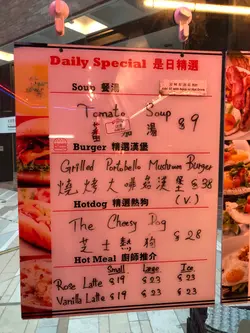 Daily Special 是日精選
Soup 餐湯
Tomato Soup $9
蕃茄湯
Burger 精選漢堡
Grilled Portobello Mushroom Burger
燒烤大啡菇漢堡 $38
(V.)
Hotdog 精選熱狗
The Cheesy Dog
芝士熱狗 $28
Hot Meal 廚師推介
Small Large Ice
Rose Latte $19 $23 $23
Vanilla Latte $19 $23 $23